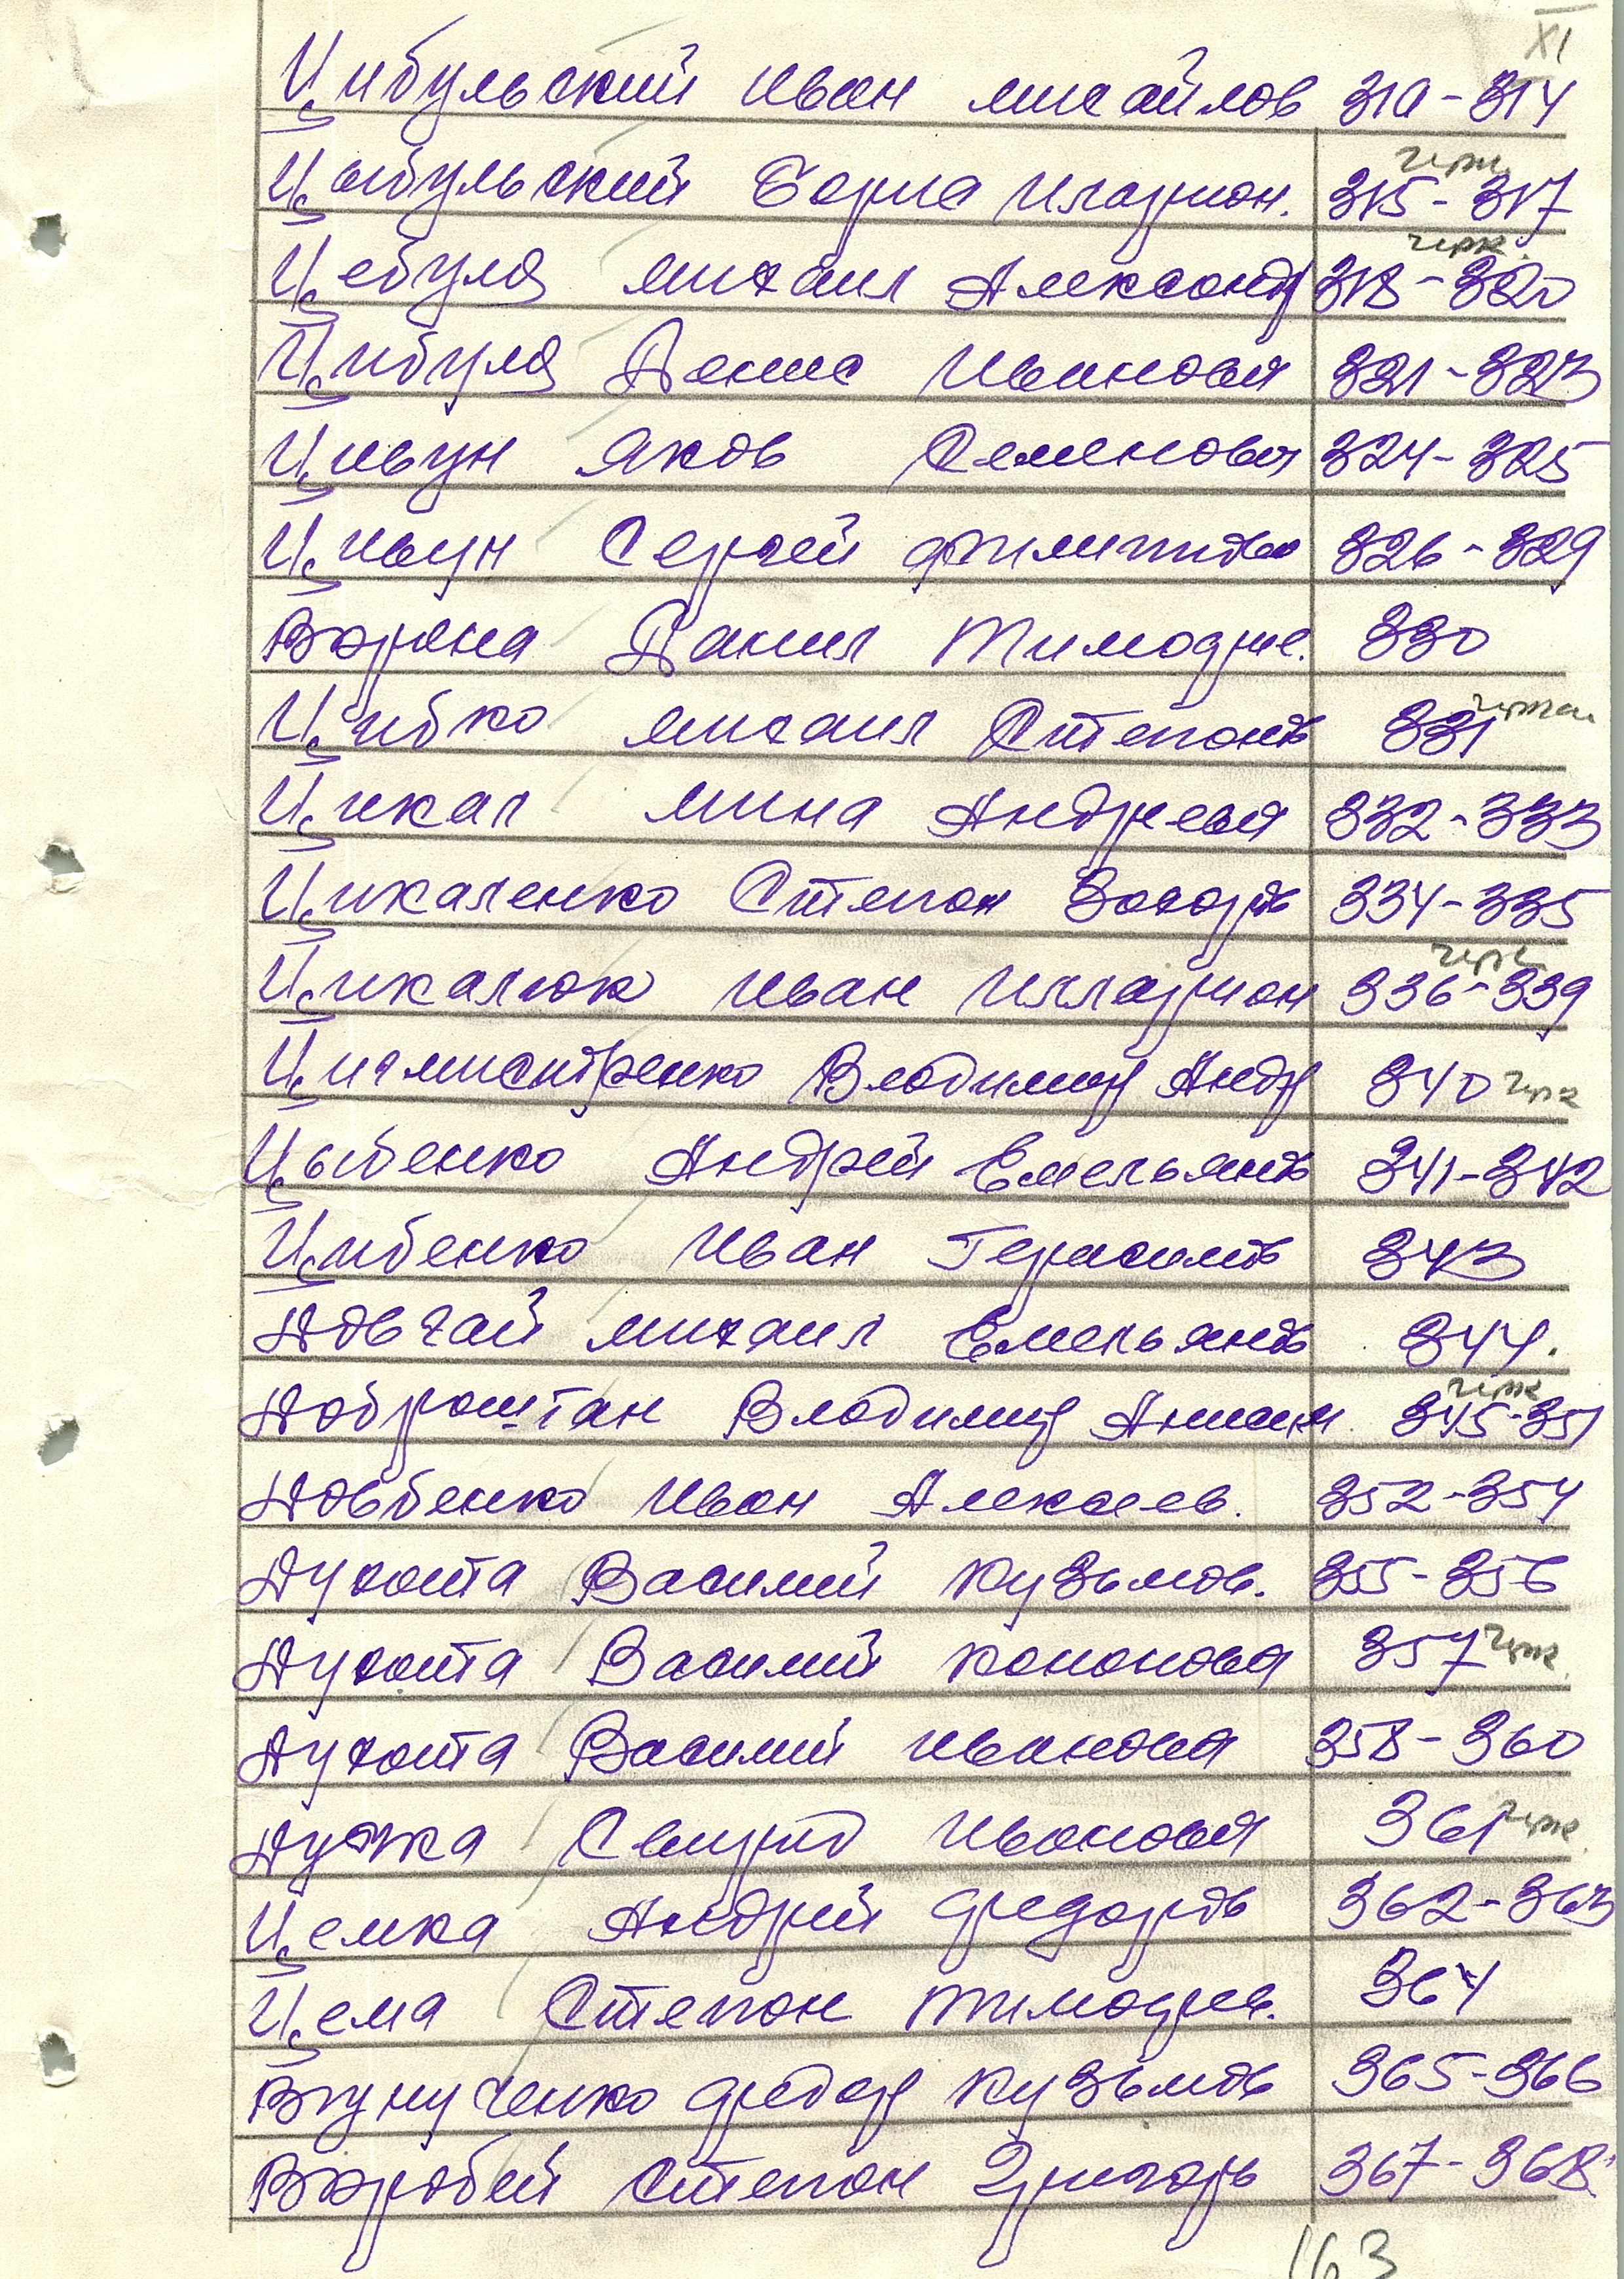 XI
Цибульский Иван Михайлов 310-314
Цыбульский Борис Иларион. 315-317 черк
Цебуля Михаил Александр 318-320 черк.
Цибуля Денис Иванович 321-323
Цивун Яков Семенович 324-325
Цивун Сергей Филиппов 326-329
Ворона Данил Тимофие. 330
Цибко Михаил Степанов 331
Цикал Мина Андреевич 332-333
Цикаленко Степан Захаров 334-335
Цикалюк Иван Илларион 336-339 черк
Владимир Андр 340 черк
Цыбенко Андрей Емельянов 341-342
Цибенко Иван Герасимов 343
Довгай Михаил Емельянов 344.
Доброштан Владимир 345-351 черк
Довбенко Иван Алексеев. 352-354
Духота Василий Кузьмов. 355-356
Духота Василий Кононович 357 черк.
Духота Василий Иванович 358-360
Дудка Свирид Иванович 361 черк.
Цемка Андрей Федоров 362-363
Цема Степан Тимофиев. 364
Федор Кузьмов 365-366
Воробей Степан Григорь 367-368.
163